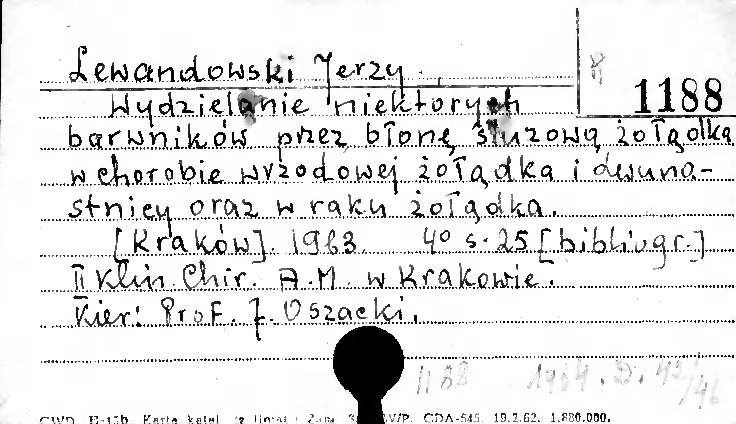 Lewandowski Jerzy.
1188
Wydzielanie niektorych
barwników przez błonę śluzową żołądka
w chorobie wrzodowej żołądka i dwuna-
stnicy oraz w raku żołądka.
[Kraków]. 1963. 4° s. 25 [bibliogr.]
II Klin. Chir. A.M. w Krakowie.
Kier: Prof. J. Oszacki.
1188 1964. D. 42/46
CWD H-15b Karta katal. 19.2.62. 1.880.000.